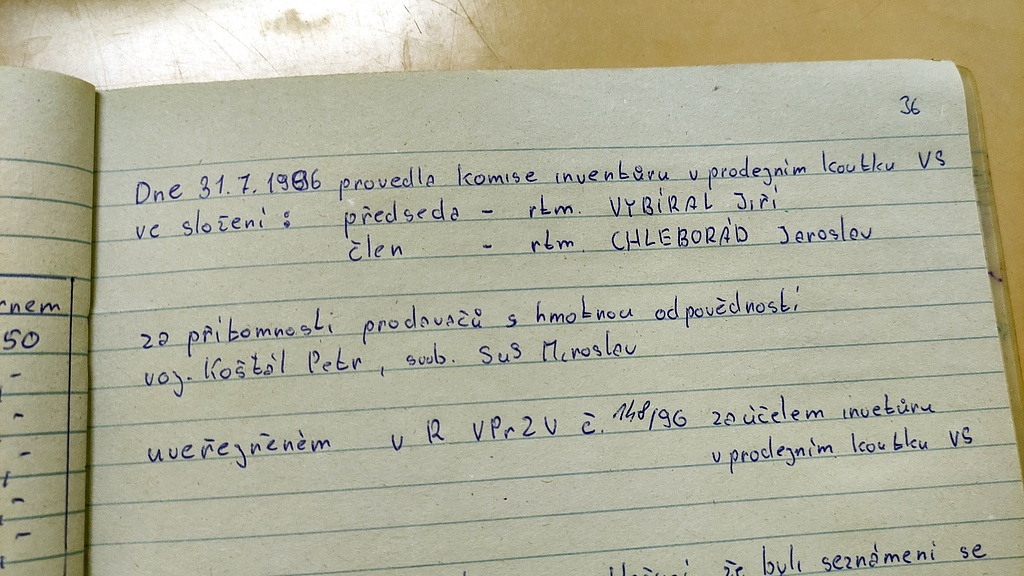 36
Dne 31.7.1996 provedla komise inventůru v prodejním koutku VS
ve složení : předseda - rtm. VYBÍRAL Jiří
člen - rtm. CHLEBORÁD Jaroslav
rnem
50
za přítomnosti prodavačů s hmotnou odpovědností
voj. Košťál Petr, svob. SuS Miroslav
uveřejněném v R VPrZV č. 148/96 za účelem invetůru
v prodejním koutku VS
že byli seznámeni se